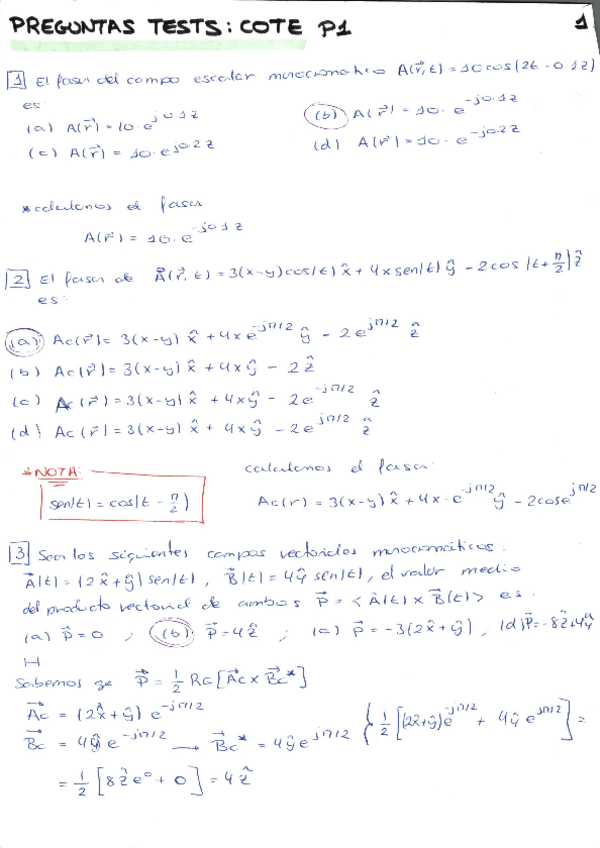 PREGUNTAS TESTS: COTE P1 1
1 El fasor del campo escalar monocromático A(r⃗,t) = 10cos(2t - 0.1z)
es:
(a) A(r⃗) = 10·e^{j0.1z} (b) A(r⃗) = 10·e^{-j0.1z}
(c) A(r⃗) = 10·e^{j0.2z} (d) A(r⃗) = 10·e^{-j0.2z}
*calculamos el fasor
A(r⃗) = 10·e^{-j0.1z}
2 El fasor de A⃗(r⃗,t) = 3(x-y)cos(t) x̂ + 4x sen(t) ŷ - 2cos(t + π/2) ẑ
es:
(a) Ac(r⃗) = 3(x-y) x̂ + 4x e^{-jπ/2} ŷ - 2e^{jπ/2} ẑ
(b) Ac(r⃗) = 3(x-y) x̂ + 4x ŷ - 2 ẑ
(c) Ac(r⃗) = 3(x-y) x̂ + 4x ŷ - 2e^{-jπ/2} ẑ
(d) Ac(r⃗) = 3(x-y) x̂ + 4x ŷ - 2e^{jπ/2} ẑ
*NOTA: calculamos el fasor:
sen(t) = cos(t - π/2) Ac(r) = 3(x-y) x̂ + 4x·e^{-jπ/2} ŷ - 2cose^{jπ/2}
3 Sean los siguientes campos vectoriales monocromáticos:
A⃗(t) = (2x̂ + ŷ) sen(t), B⃗(t) = 4ŷ sen(t), el valor medio
del producto vectorial de ambos P⃗ = <A(t) × B⃗(t)> es:
(a) P⃗ = 0 ; (b) P⃗ = 4ẑ ; (c) P⃗ = -3(2x̂ + ŷ), (d) P⃗ = -8ẑ + 4ŷ
Sabemos qe P⃗ = 1/2 Re[A⃗c × B⃗c*]
A⃗c = (2x̂ + ŷ) e^{-jπ/2}
B⃗c = 4ŷ e^{-jπ/2} → B⃗c* = 4ŷ e^{jπ/2} { 1/2 [(2x̂+ŷ)e^{-jπ/2} + 4ŷ e^{jπ/2}] =
= 1/2 [8ẑ e⁰ + 0] = 4ẑ